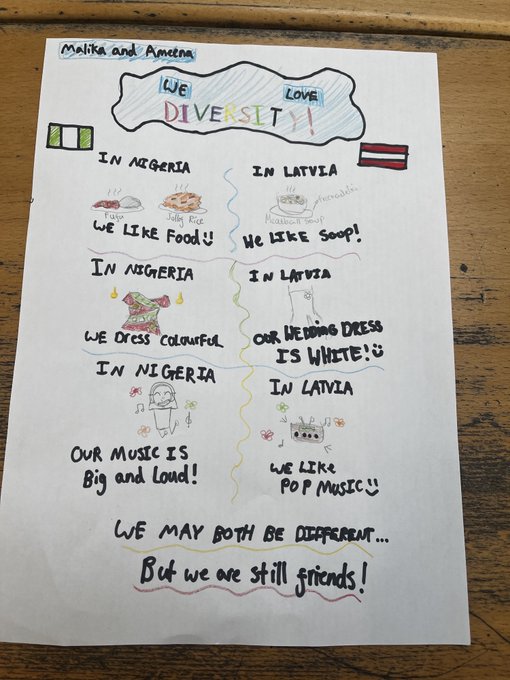 Malika and Ameena
WE LOVE
DIVERSITY!
IN NIGERIA
Fufu
Jolly Rice
WE LIKE Food
IN LATVIA
Meatball Soup
We LIKE Soup!
IN NIGERIA
WE DRESS COLOURFUL
IN LATVIA
OUR WEDDING DRESS
IS WHITE!
IN NIGERIA
OUR MUSIC IS
Big and Loud!
IN LATVIA
WE LIKE
POP MUSIC
WE MAY BOTH BE DIFFERENT...
But we are still friends!